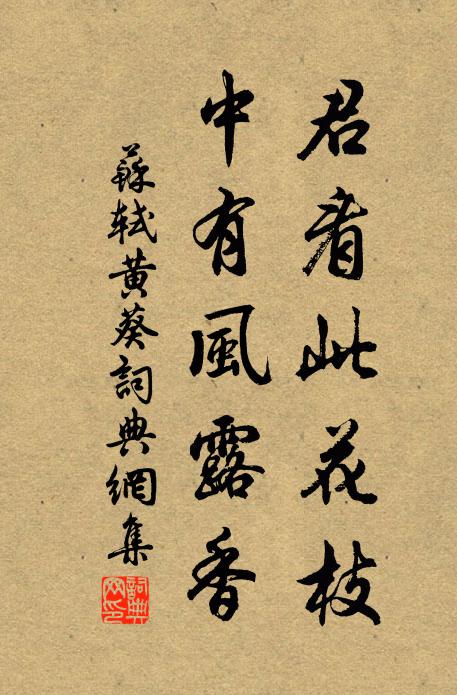 君看此花枝
中有風露香
蘇軾黃葵詞典網集
詞典网印